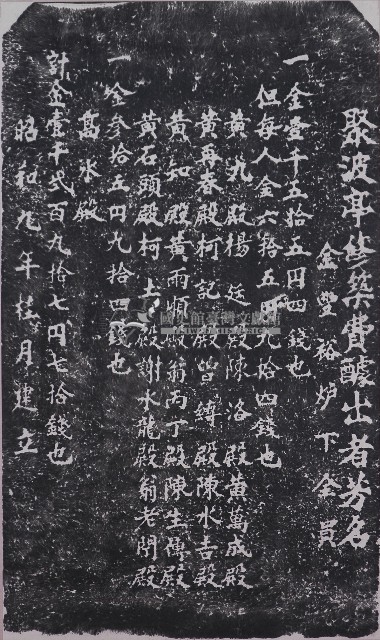 聚波亭修築費醵出者芳名
金豐裕炉下全員
一金壹千五拾五円四錢也
但每人金六拾五円九拾四錢也
黃光殿楊廷殿陳洛殿黃萬成殿
黃再春殿柯記殿曾縳殿陳水吉殿
黃知殿黃雨順殿翁丙丁殿陳生傳殿
黃石頭殿柯土殿謝水龍殿翁老問殿
一金參拾五円九拾四錢也
高水殿
計金壹千弍百九拾七円七拾錢也
昭和九年桂月建立
國史館臺灣文獻館